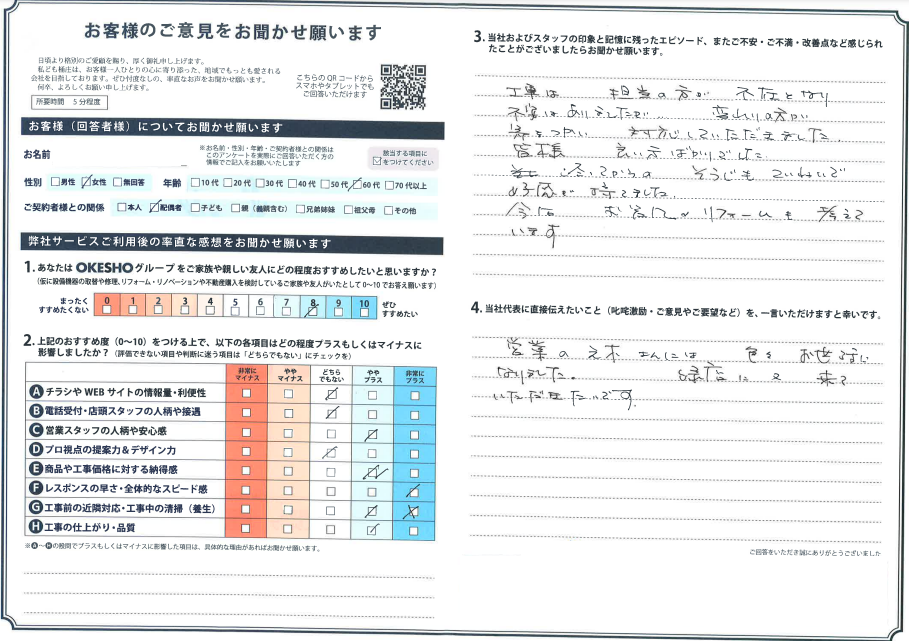 お客様のご意見をお聞かせ願います
日頃より格別のご愛顧を賜り、厚く御礼申し上げます。
私ども桶庄は、お客様一人ひとりの心に寄り添った、地域でもっとも愛される
会社を目指しております。ぜひ忖度なしの、率直なお声をお聞かせ願います。
何卒、よろしくお願い申し上げます。
所要時間 5分程度
こちらのQRコードから
スマホやタブレットでも
ご回答いただけます
お客様（回答者様）についてお聞かせ願います
お名前
※お名前・性別・年齢・ご契約者様との関係は
このアンケートを実際にご回答いただく方の
情報でご記入をお願いいたします
該当する項目に
☑をつけてください
性別 □男性 ☑女性 □無回答 年齢 □10代 □20代 □30代 □40代 □50代 ☑60代 □70代以上
ご契約者様との関係 □本人 ☑配偶者 □子ども □親（義親含む） □兄弟姉妹 □祖父母 □その他
弊社サービスご利用後の率直な感想をお聞かせ願います
1. あなたは OKESHOグループ をご家族や親しい友人にどの程度おすすめしたいと思いますか？
（仮に設備機器の取替や修理、リフォーム・リノベーションや不動産購入を検討しているご家族や友人がいたとして0～10でお答え願います）
まったく
すすめたくない
0 1 2 3 4 5 6 7 8 9 10
ぜひ
すすめたい
2. 上記のおすすめ度（0～10）をつける上で、以下の各項目はどの程度プラスもしくはマイナスに
影響しましたか？（評価できない項目や判断に迷う項目は「どちらでもない」にチェックを）
非常にマイナス ややマイナス どちらでもない ややプラス 非常にプラス
A チラシやWEBサイトの情報量・利便性
B 電話受付・店頭スタッフの人柄や接遇
C 営業スタッフの人柄や安心感
D プロ視点の提案力＆デザイン力
E 商品や工事価格に対する納得感
F レスポンスの早さ・全体的なスピード感
G 工事前の近隣対応・工事中の清掃（養生）
H 工事の仕上がり・品質
※A～Hの設問でプラスもしくはマイナスに影響した項目は、具体的な理由があればお聞かせ願います。
3. 当社およびスタッフの印象と記憶に残ったエピソード、またご不安・ご不満・改善点など感じられ
たことがございましたらお聞かせ願います。
工事は 担当の方が 不在となり
不安はありましたが 変わりの方が
対応していただきました
皆様 良い方ばかりでした
そうじもていねいで
好感が持てました
今後 お風呂 リフォームも 考えて
います
4. 当社代表に直接伝えたいこと（叱咤激励・ご意見やご要望など）を、一言いただけますと幸いです。
営業の さんには 色々 お世話に
なりました。 来て
いただきたいです
ご回答をいただき誠にありがとうございました